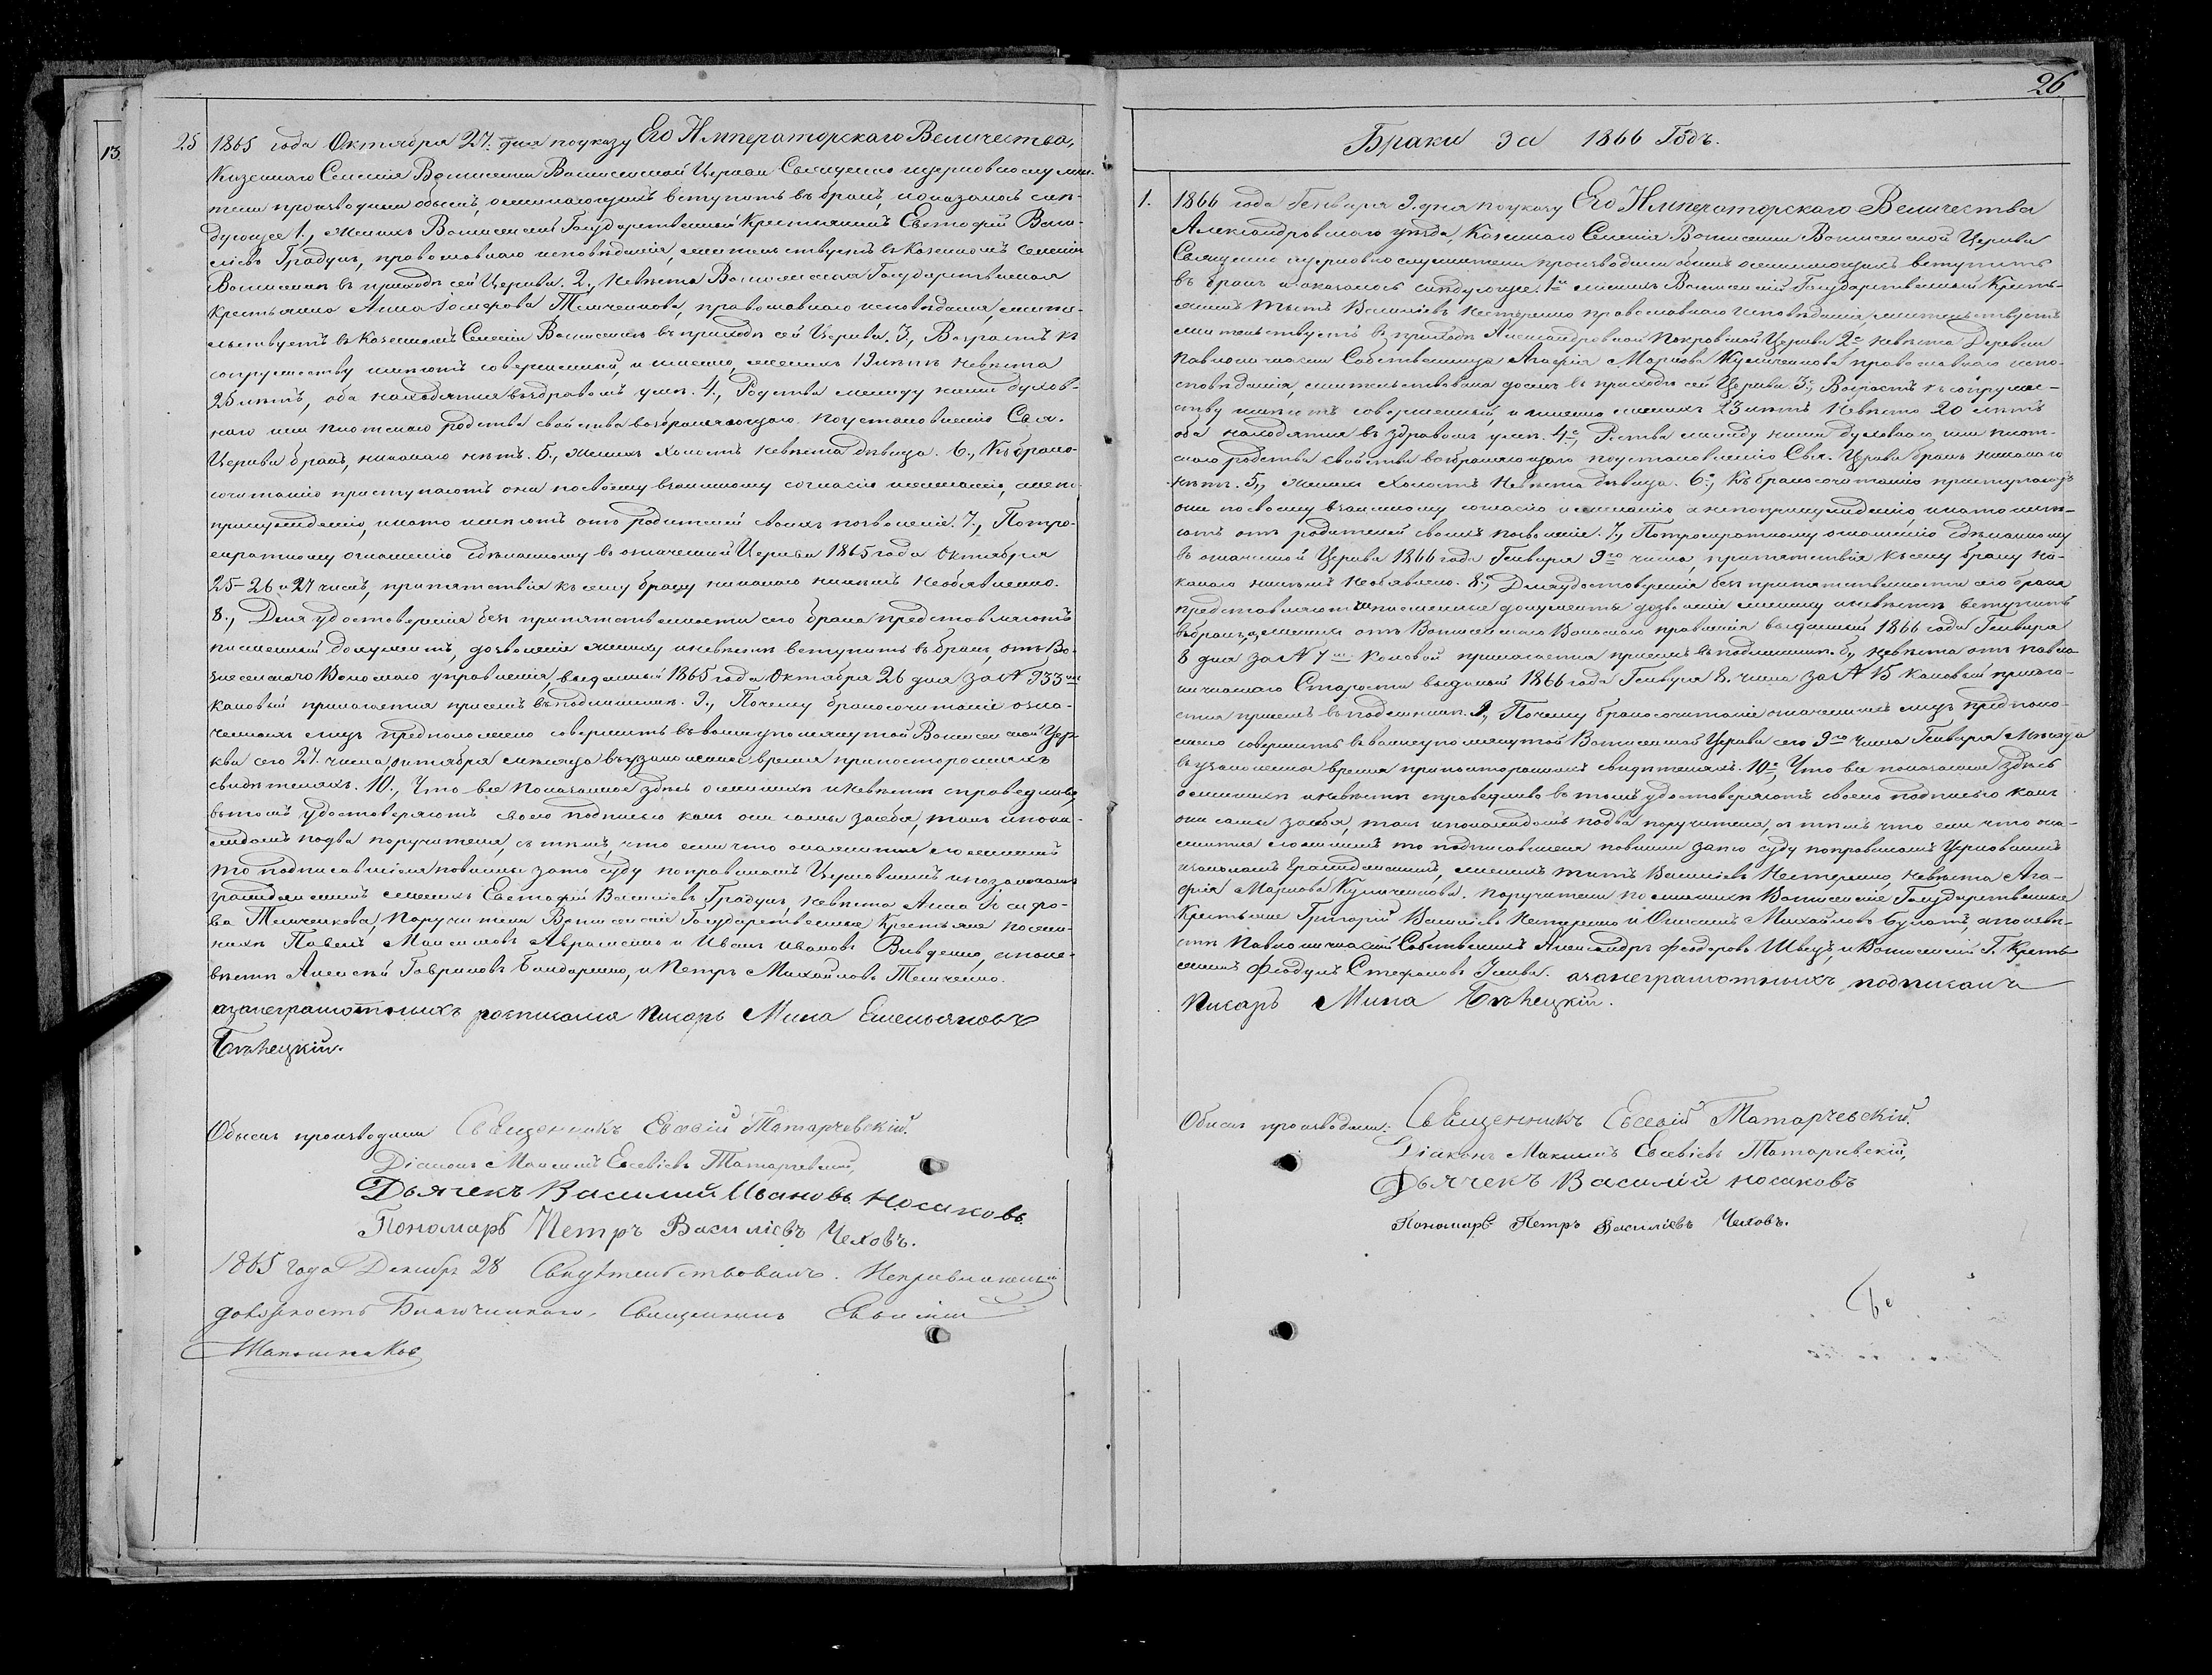 13.
25 1865 года Октября 27. дня по указу Его Императорскаго Величества,
Казеннаго Селенія Вознесенки Вознесенской Церкви Священно и церковнослужи-
тели производили обыскъ, о желающихъ вступить въ бракъ, и оказалось слѣ-
дующее 1., Женихъ Вознесенскій Государственный Крестьянинъ Евстафій Васи-
лiевъ Градунъ, православнаго исповѣданія, жительствуетъ въ Казенномъ Селеніи
Вознесенки въ приходѣ сей Церкви. 2., Невѣста Вознесенская Государственная
Крестьянка Анна Темченкова, православнаго исповѣданія, житель-
ствуетъ въ Казенномъ Селеніи Вознесенки въ приходѣ сей Церкви. 3., Возрастъ къ
супружеству имѣютъ совершенный, и именно, женихъ 19 лѣтъ невѣста
25 лѣтъ, оба находятся въ здравомъ умѣ. 4., Родства между ними духов-
наго или плотскаго родства свойства возбраняющаго по установленію Свя.
Церкви бракъ, никакого нѣтъ. 5., Женихъ холостъ невѣста дѣвица. 6., Къ брако-
сочитанію приступаютъ они по своему взаимному согласію и желанію, а не по
принужденію, и на то имѣютъ отъ родителей своихъ позволеніе. 7., По трое-
кратному оглашенію сдѣланному въ означенной Церкви 1865 года Октября
25-26 и 27 чиселъ, препятствія къ сему браку никакого никѣмъ не объявлено.
8., Для удостоверенія безпрепятственности сего брака представляютъ
писменный документъ, дозволеніе жениху и невѣстѣ вступить въ бракъ, отъ Воз-
несенскаго Волостнаго управленія, выданный 1865 года Октября 26 дня за № 933
каковый прилагается при семъ въ подлинникѣ. 9., Почему бракосочитаніе озна-
ченныхъ лицъ предположено совершить въ вышеупомянутой Вознесенской Цер-
кви сего 27. числа, октября мѣсяца въ узаконенное время при постороннихъ
свидѣтеляхъ. 10., Что все показанное здѣсь о женихѣ и невѣстѣ справедливо,
въ томъ удостоверяютъ своею подписью какъ они самы за себя, такъ и по каж-
домъ по два поручителя, съ тѣмъ, что если что окажется ложнымъ
то подписавшіеся повинны за то суду по правиламъ Церковнымъ и по законамъ
гражданскимъ женихъ Евстафій Василіевъ Градунъ, невѣста Анна
Темченкова, Поручители Вознесенскіе Государственные Крестьяне по же-
нихѣ Павелъ Максимовъ Авраменко и Иванъ Ивановъ Вивденко, а по не-
вѣстѣ Алексѣй Гавриловъ Бондаренко, и Петръ Михайловъ Темченко.
а за неграмотныхъ росписался писарь Мина Емельяновъ
Бѣлецкій.
Обыскъ производили Священникъ Евсевій Татарчевскій.
Діаконъ Максимъ Евсевіевъ Татарчевскій,
Дьячекъ Василій Ивановъ Носаковъ.
Пономарь Петръ Василіевъ Чеховъ.
1865 года Декабря 28 Свидѣтельствовалъ. Исправляющій
должность Благочиннаго, Священникъ Евѳимій
26
Браки за 1866 Годъ.
1. 1866 года Генваря 9. дня по указу Его Императорскаго Величества
Александровскаго уѣзда, Казеннаго Селенія Вознесенки Вознесенской Церкви
Священно и церковнослужители производили обыскъ о желающихъ вступить
въ бракъ и оказалось слѣдующее. 1е женихъ Вознесенскій Государственный Кресть-
янинъ Титъ Василіевъ Нестеренко православнаго исповѣданія, жительствуетъ
жительствуетъ въ приходѣ Александровской Покровской Церкви 2е невѣста Деревни
Павлокичкаски Собственница Агафія Маркова Куличенкова православнаго испо-
сповѣданія, жительствовала доселѣ въ приходѣ сей Церкви 3е, Возрастъ къ супруже-
ству имѣютъ совершенный, и именно женихъ 23 лѣтъ невѣста 20 лѣтъ
оба находятся въ здравомъ умѣ. 4е, Родства между ними духовнаго или плот-
скаго родства свойства возбраняющаго по установленію Свя. Церкви бракъ никакого
нѣтъ. 5., Женихъ холостъ невѣста дѣвица. 6е, Къ бракосочитанію приступаютъ
они по своему взаимному согласію и желанію а не по принужденію, и на то имѣ-
ютъ отъ родителей своихъ позволеніе. 7., По троекратному оглашенію сдѣланному
въ означенной Церкви 1866 года Генваря 9го числа, препятствія къ сему браку ни-
какого никѣмъ не объявлено. 8е, Для удостоверенія безпрепятственности сего брака
представляютъ писменные документы дозволеніе жениху и невѣстѣ вступить
въ бракъ, а, женихъ отъ Вознесенскаго Волостнаго правленія выданный 1866 года Генваря
8 дня за № 7 каковой прилагается при семъ въ подлинникѣ. б, невѣста отъ Павло-
кичкаскаго Старосты выданый 1866 года Генваря 8. числа за № 15 каковый прилага-
ется при семъ въ подлинникѣ. 9, Почему бракосочитаніе означенныхъ лицъ предполо-
жено совершить въ вышеупомянутой Вознесенской Церкви сего 9го числа Генваря мѣсяца
въ узаконенное время при постороннихъ свидѣтеляхъ. 10е, Что все показанное здѣсь
о женихѣ и невѣстѣ справедливо въ томъ удостоверяютъ своею подписью какъ
они самы за себя, такъ и по каждомъ по два поручителя, съ тѣмъ что если что ока-
жется ложнымъ то подписавшіеся повинны за то суду по правиламъ Церковнымъ
и законамъ Гражданскимъ, женихъ Титъ Василіевъ Нестеренко, невѣста Ага-
фія Маркова Куличенкова. Поручители по женихѣ Вознесенскіе Государственные
Крестьяне Григорій Василіевъ Нестеренко и Михайловъ Булатъ, а по невѣ-
стѣ Павлокичкаскій Собственникъ Александръ Феодоровъ Швецъ, и Вознесенскій Г. Кресть-
янинъ Феодулъ Стефановъ а за неграмотныхъ подписался
Писарь Мина Бѣлецкій.
Обыскъ производили: Священникъ Евсевій Татарчевскій.
Діаконъ Максимъ Евсевіевъ Татарчевскій,
Дьячекъ Василій Носаковъ
Пономарь Петръ Василіевъ Чеховъ.